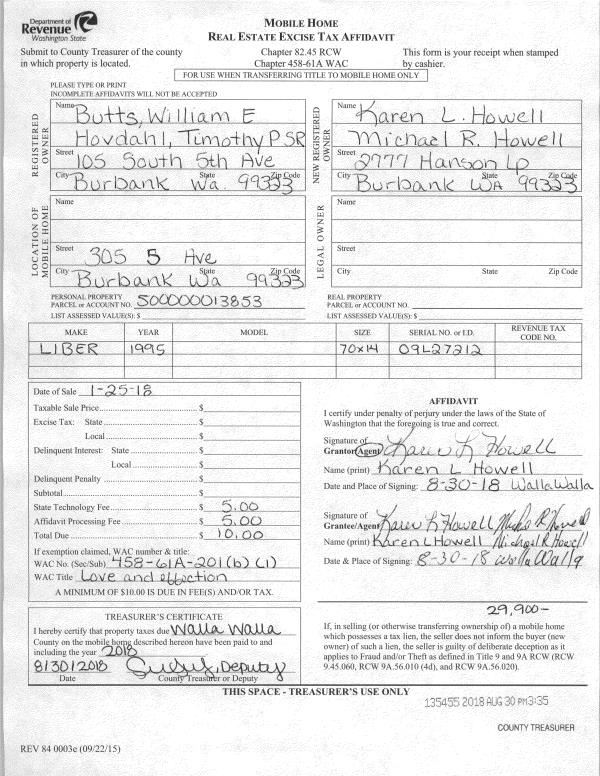 Department of
Revenue
Washington State
MOBILE HOME
REAL ESTATE EXCISE TAX AFFIDAVIT
Submit to County Treasurer of the county
in which property is located.
Chapter 82.45 RCW
Chapter 458-61A WAC
This form is your receipt when stamped
by cashier.
FOR USE WHEN TRANSFERRING TITLE TO MOBILE HOME ONLY
PLEASE TYPE OR PRINT
INCOMPLETE AFFIDAVITS WILL NOT BE ACCEPTED
REGISTERED OWNER
Name Butts, William E
Hovdahl, Timothy P SR
Street 105 South 5th Ave
City Burbank State Wa. Zip Code 99323
NEW REGISTERED OWNER
Name Karen L. Howell
Michael R. Howell
Street 2777 Hanson Lp
City Burbank State WA Zip Code 99323
LOCATION OF MOBILE HOME
Name
Street 305 5 Ave
City Burbank State Wa Zip Code 99323
LEGAL OWNER
Name
Street
City State Zip Code
PERSONAL PROPERTY
PARCEL or ACCOUNT NO. 500000013853
LIST ASSESSED VALUE(S): $
REAL PROPERTY
PARCEL or ACCOUNT NO.
LIST ASSESSED VALUE(S): $
MAKE YEAR MODEL SIZE SERIAL NO. or I.D. REVENUE TAX CODE NO.
LIBER 1995 70x14 09L27212
Date of Sale 1-25-18
Taxable Sale Price $
Excise Tax: State $
Local $
Delinquent Interest: State $
Local $
Delinquent Penalty $
Subtotal $
State Technology Fee $ 5.00
Affidavit Processing Fee $ 5.00
Total Due $ 10.00
If exemption claimed, WAC number & title:
WAC No. (Sec/Sub) 458-61A-201(b)(1)
WAC Title Love and affection
A MINIMUM OF $10.00 IS DUE IN FEE(S) AND/OR TAX.
AFFIDAVIT
I certify under penalty of perjury under the laws of the State of
Washington that the foregoing is true and correct.
Signature of
Grantor/Agent Karen L Howell
Name (print) Karen L Howell
Date and Place of Signing: 8-30-18 Walla Walla
Signature of
Grantee/Agent Karen L Howell Michael R Howell
Name (print) Karen L Howell Michael R Howell
Date & Place of Signing: 8-30-18 Walla Walla
29,900-
TREASURER'S CERTIFICATE
I hereby certify that property taxes due Walla Walla
County on the mobile home described hereon have been paid to and
including the year 2018
8/30/2018 Deputy
Date County Treasurer or Deputy
If, in selling (or otherwise transferring ownership of) a mobile home
which possesses a tax lien, the seller does not inform the buyer (new
owner) of such a lien, the seller is guilty of deliberate deception as it
applies to Fraud and/or Theft as defined in Title 9 and 9A RCW (RCW
9.45.060, RCW 9A.56.010 (4d), and RCW 9A.56.020).
THIS SPACE - TREASURER'S USE ONLY
135455 2018 AUG 30 PM 3:35
COUNTY TREASURER
REV 84 0003e (09/22/15)